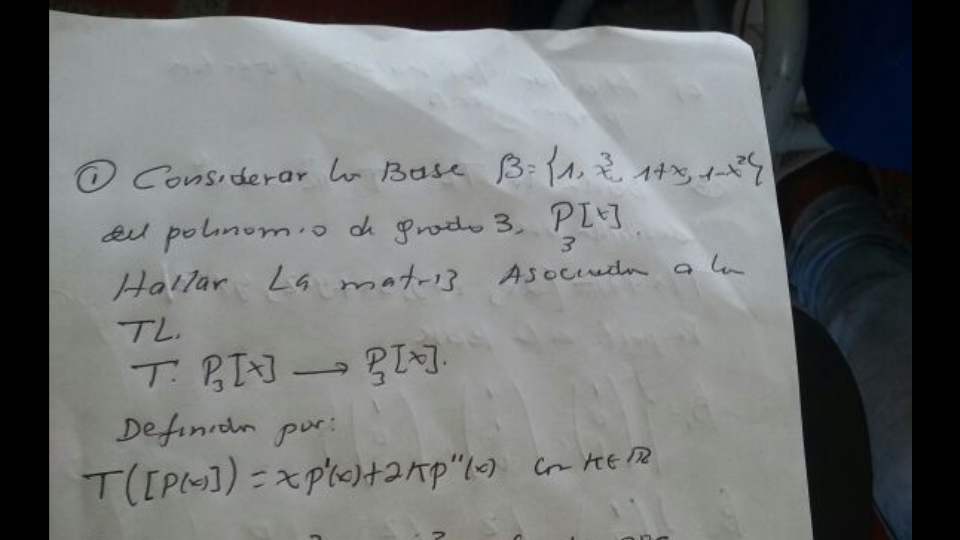 ① Considerar la Base β={1, x³, 1+x, 1-x²}
del polinomio de grado 3, P₃[x].
Hallar La matriz Asociada a la
TL.
T: P₃[x] → P₃[x].
Definida por:
T([P(x)]) = xp'(x)+2kp''(x) con k∈ℝ